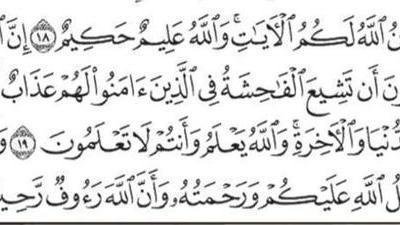 نُ ٱللَّهُ لَكُمُ ٱلْآيَاتِ ۚ وَٱللَّهُ عَلِيمٌ حَكِيمٌ ١٨ إِنَّ ٱ
ونَ أَن تَشِيعَ ٱلْفَاحِشَةُ فِي ٱلَّذِينَ ءَامَنُوا۟ لَهُمْ عَذَابٌ
دُّنْيَا وَٱلْآخِرَةِ ۚ وَٱللَّهُ يَعْلَمُ وَأَنتُمْ لَا تَعْلَمُونَ ١٩ وَ
لُ ٱللَّهِ عَلَيْكُمْ وَرَحْمَتُهُۥ وَأَنَّ ٱللَّهَ رَءُوفٌ رَّحِي